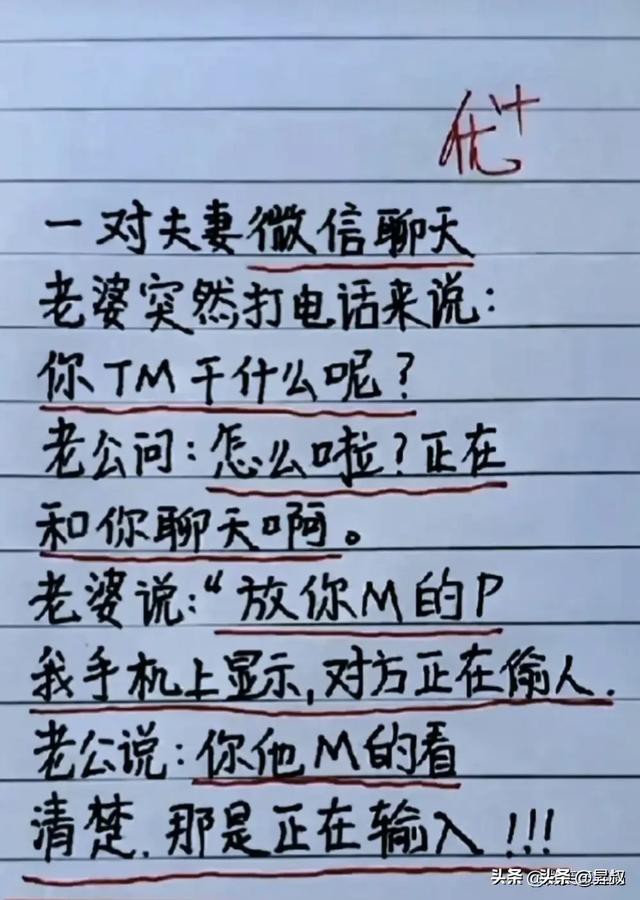 优+
一对夫妻微信聊天
老婆突然打电话来说:
你TM干什么呢?
老公问:怎么啦?正在
和你聊天啊。
老婆说:“放你M的P
我手机上显示,对方正在偷人.
老公说:你他M的看
清楚.那是正在输入!!!
头条@昙叔